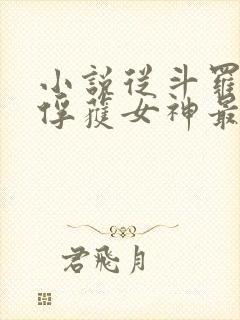 小說從斗羅
俘獲女神最
君飛月